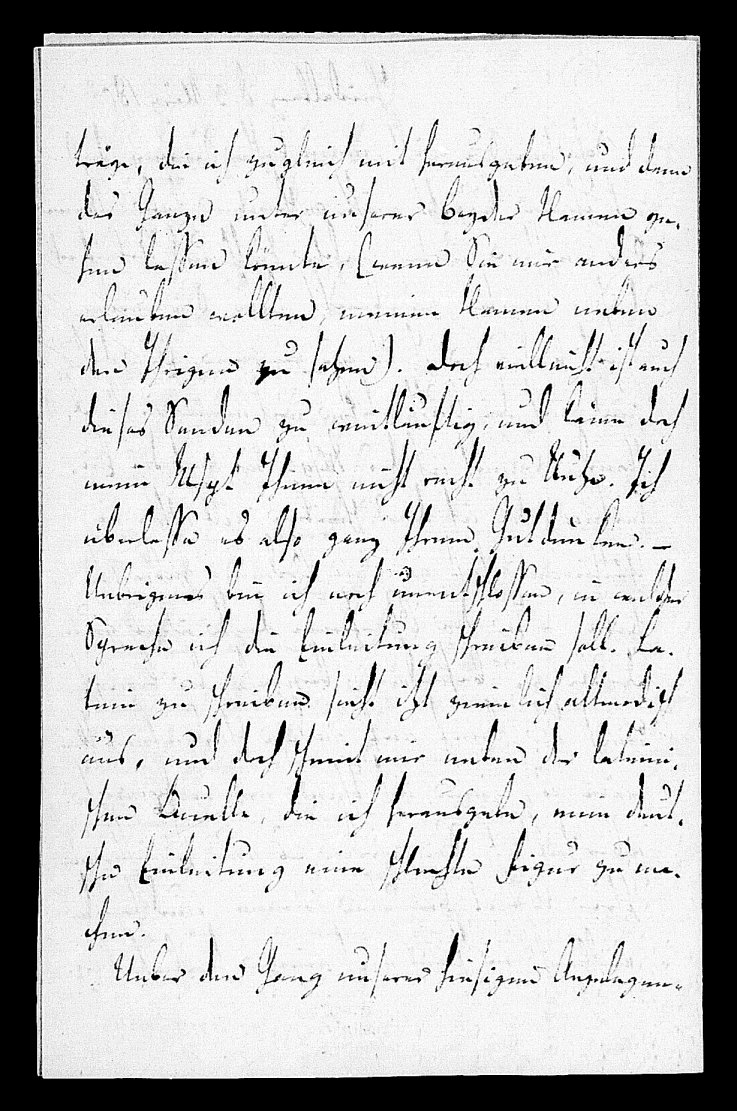 träge, die ich zugleich mit herausgeben, und dann
das Ganze unter unserer beyder Namen ge-
hen lassen könnte, (wenn Sie mir anders
erlauben wollten, meinen Namen neben
den Ihrigen zu setzen). Doch vielleicht ist auch
dieses Senden zu weitläuftig, und käme doch
mein Mspt Ihnen nicht recht zu Nutze. Ich
überlasse es also ganz Ihrem Gutdünken. —
Uebrigens bin ich noch unentschlossen, in welcher
Sprache ich die Einleitung schreiben soll. La-
tein zu schreiben sieht itzt ziemlich altmodisch
aus, und doch scheint mir neben der lateini-
schen Quelle, die ich herausgebe, eine deut-
sche Einleitung eine schlechte Figur zu ma-
chen.
Ueber den Gang unserer hiesigen Angelegen-